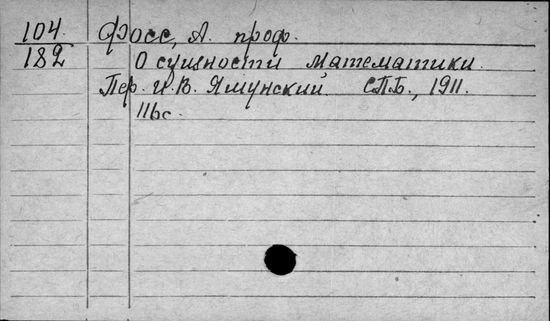 104. Фосс, А. проф.
182 О сущности математики.
Пер. И. В. Ямунский. С.П.Б., 1911.
116с.